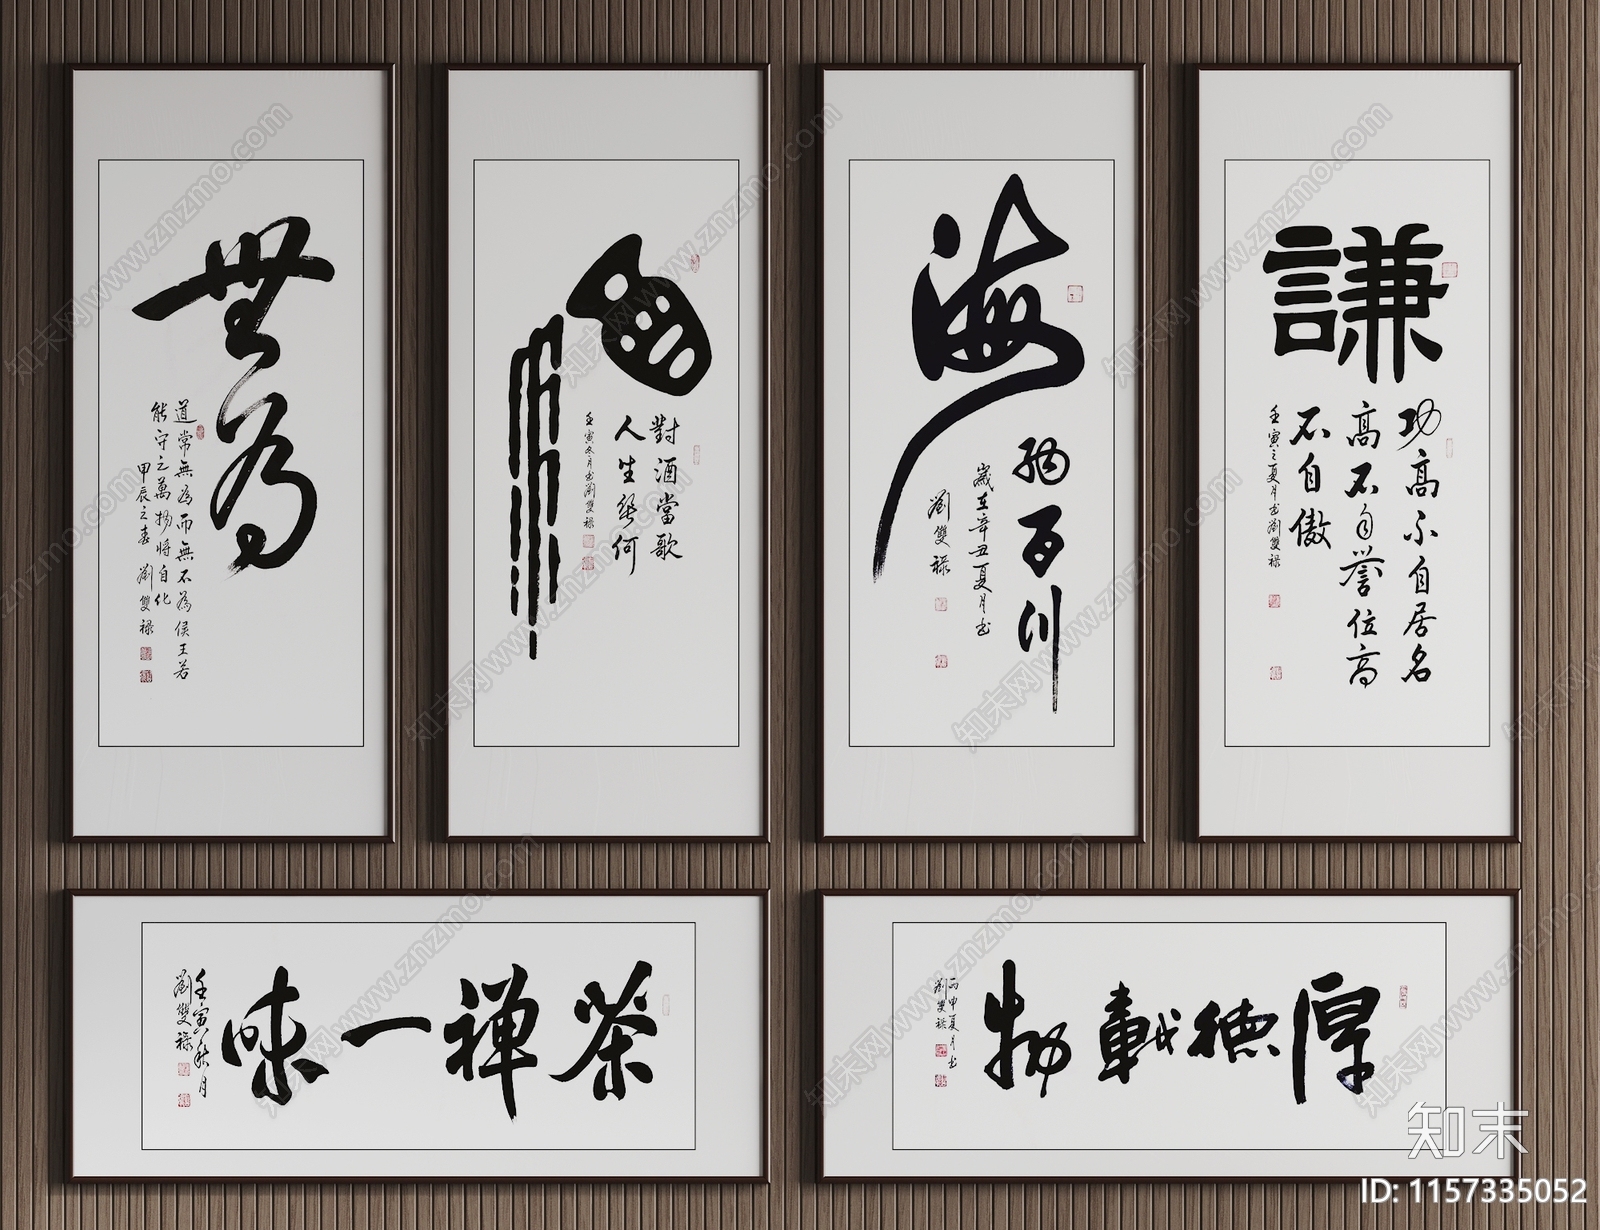 無為
道常無為而無不為侯王若
能守之萬物將自化
甲辰之春 劉雙禄
對酒當歌
人生幾何
壬寅冬月书劉雙禄
海
納百川
歲在辛丑夏月书
劉雙禄
謙
功高不自居名
高不自譽位高
不自傲
壬寅之夏月书劉雙禄
茶禅一味
壬寅秋月
劉雙禄
厚德載物
丙申夏月书
劉雙禄
知末网www.znzmo.com
知末
ID: 1157335052